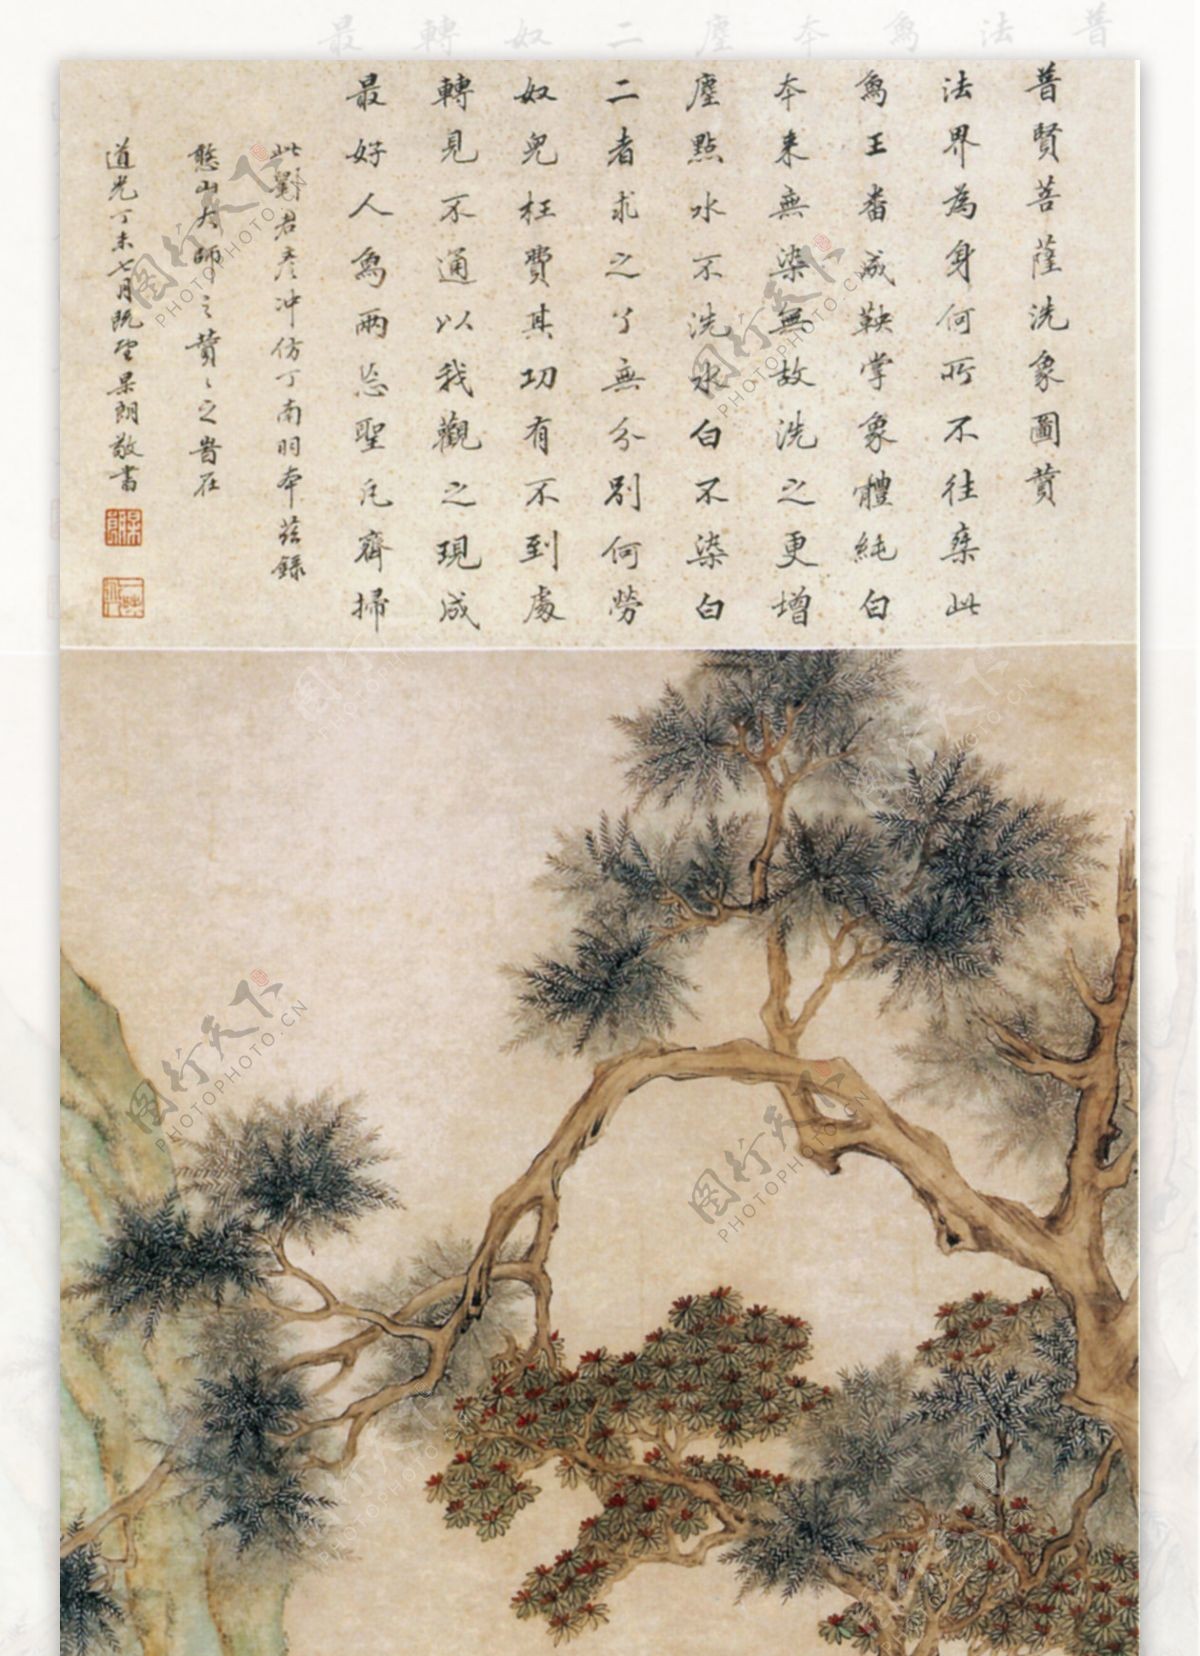 普賢菩薩洗象圖贊
法界為身何所不往乘此
為王番成鞅掌象體純白
本來無染無故洗之更增
塵點水不洗水白不染白
二者求之了無分別何勞
奴兒枉費其功有不到處
轉見不通以我觀之現成
最好人為兩忘聖凡齊掃
此劉君彥冲仿丁南羽本茲錄
憨山大師之贊之時在
道光丁未七月既望果朗敬書